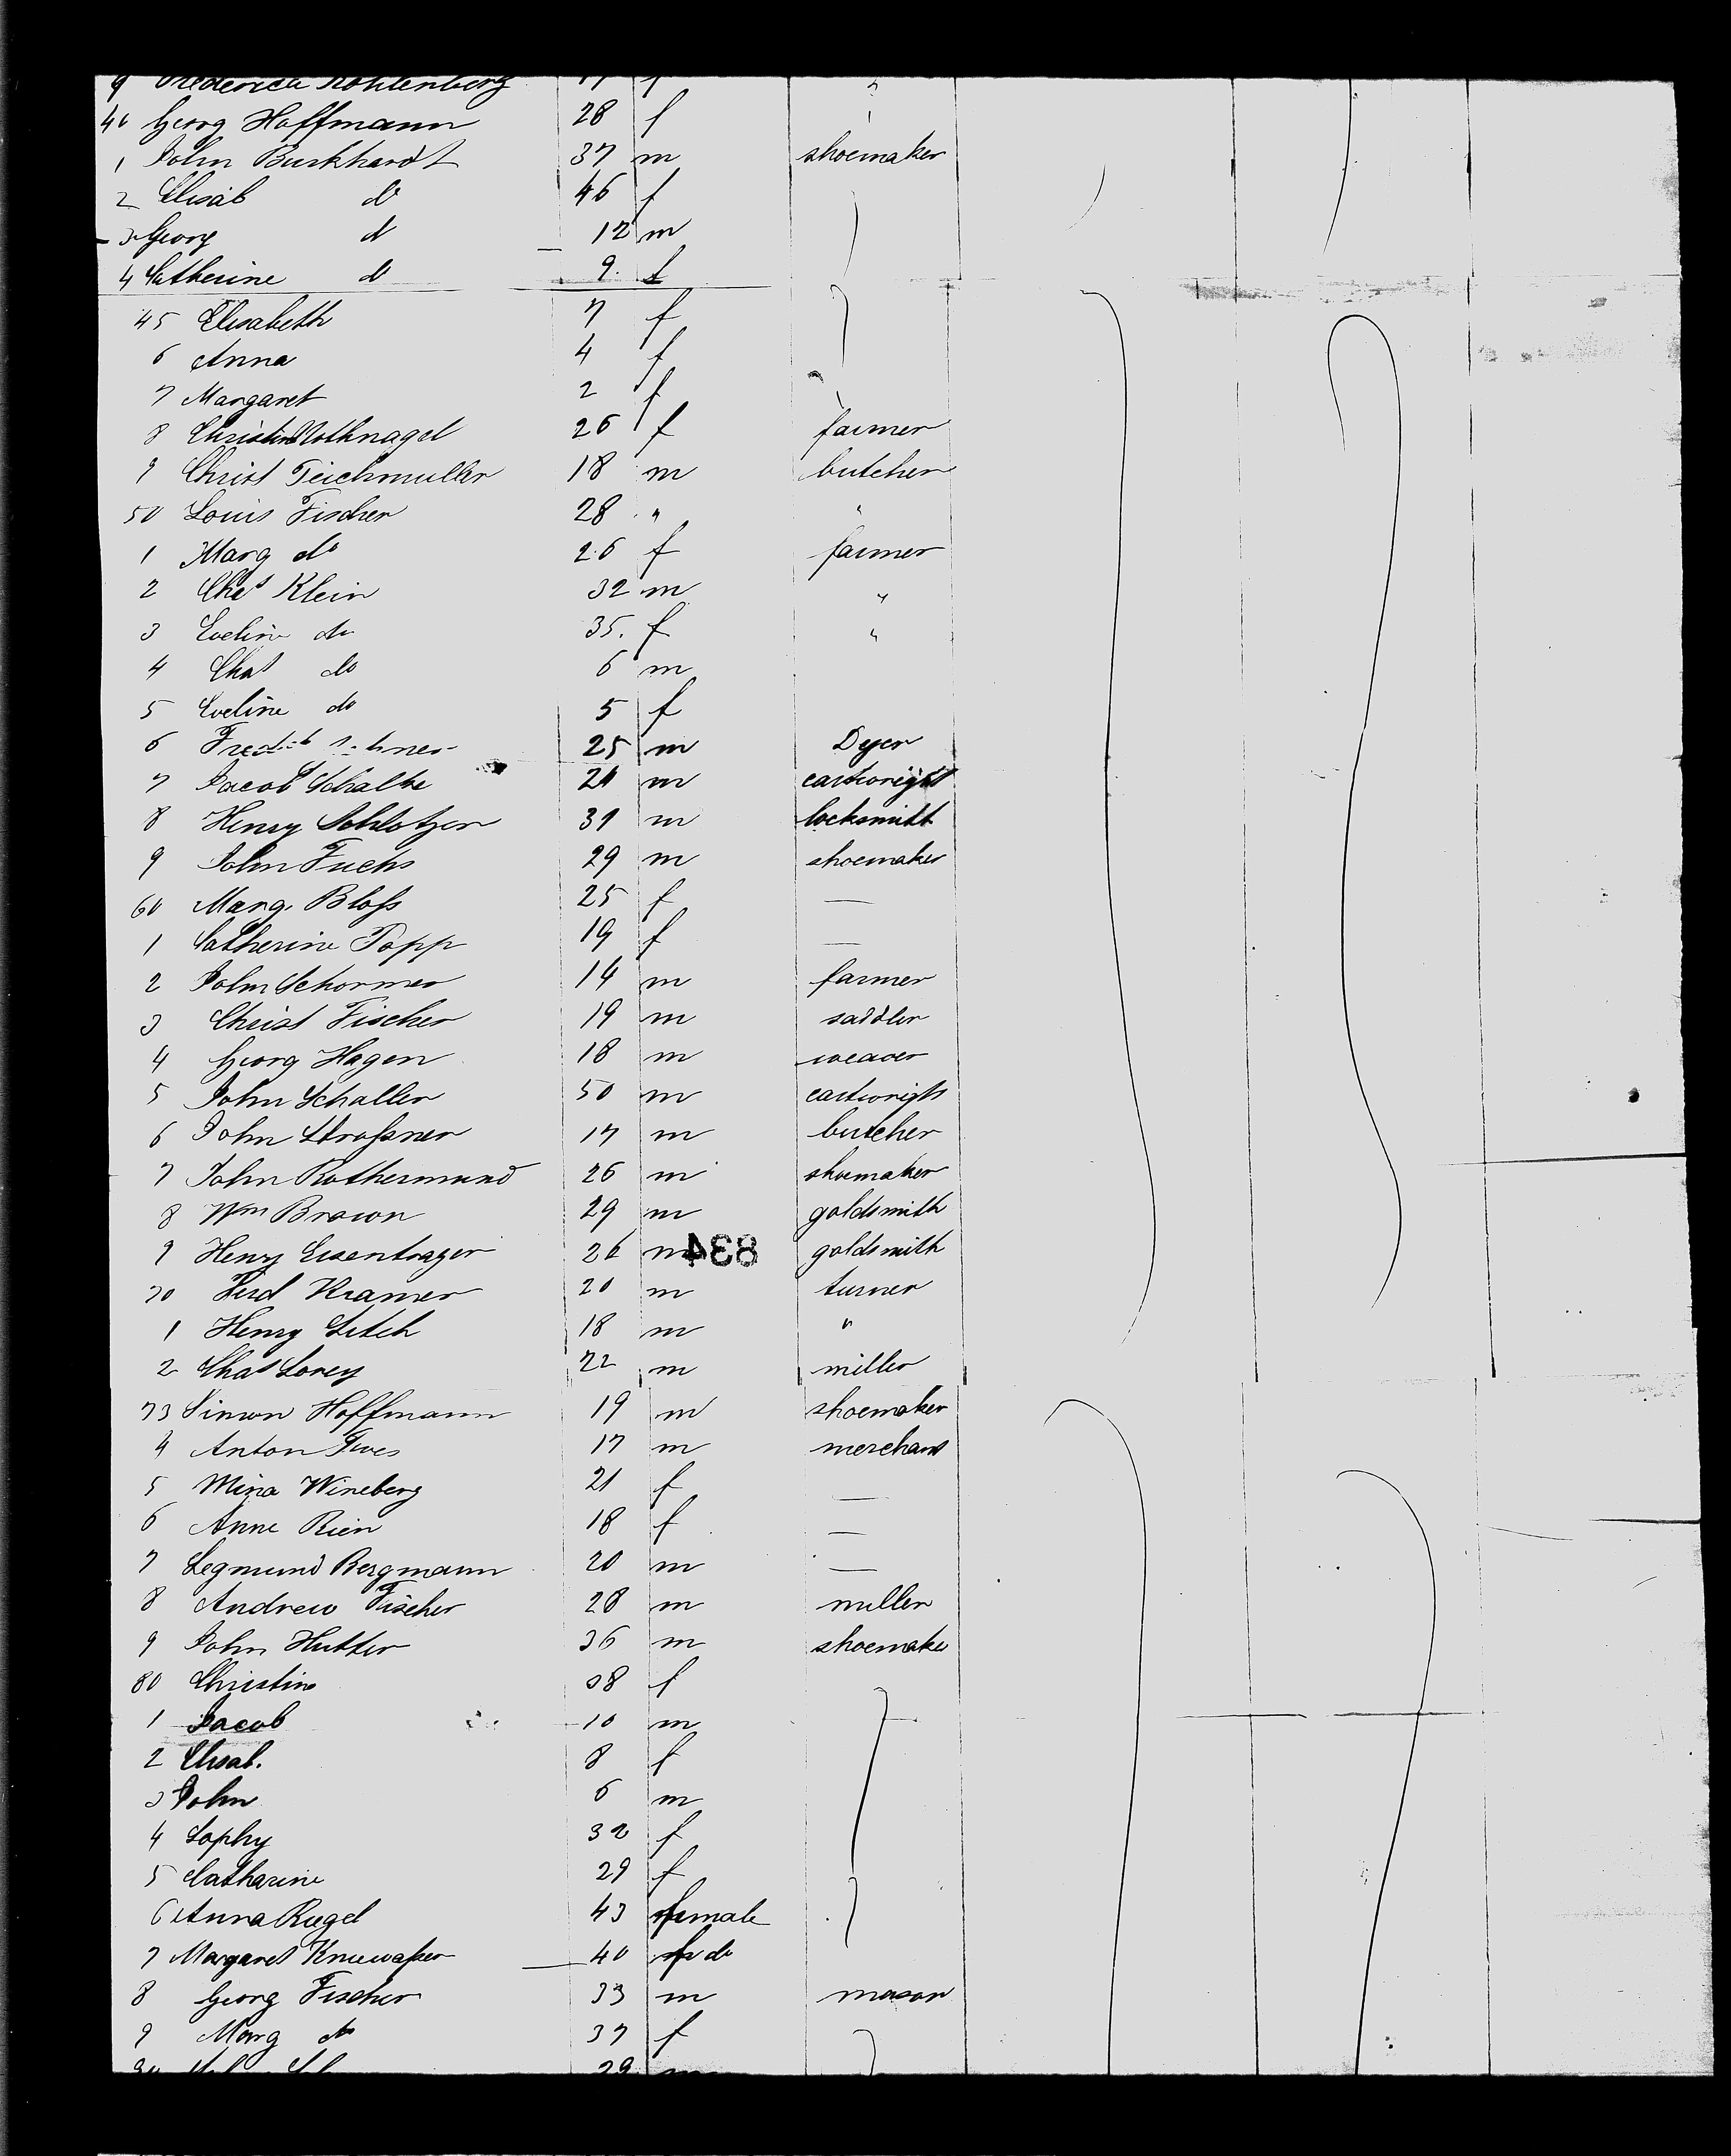 9 Frederica Kohlenberg f "
40 Georg Hoffmann 28 f "
1 John Burkhardt 37 m shoemaker
2 Elisab do 46 f
3 Georg do 12 m
4 Catherine do 9. f
45 Elisabeth 7 f
6 Anna 4 f
7 Margaret 2 f
8 Christine Nothnagel 26 f farmer
9 Christ Teichmuller 18 m butcher
50 Louis Fischer 28 " "
1 Marg do 26 f farmer
2 Chas Klein 32 m "
3 Eveline do 35. f "
4 Chas do 6 m
5 Eveline do 5 f
6 25 m Dyer
7 Jacob 21 m cartwright
8 Henry Schlotzer 31 m locksmith
9 John Fuchs 29 m shoemaker
60 Marg. Bloss 25 f —
1 Catherine Popp 19 f —
2 John Schormer 14 m farmer
3 Christ Fischer 19 m saddler
4 Georg Hagen 18 m weaver
5 John Schaller 50 m cartwright
6 John Strossner 17 m butcher
7 John Rothermund 26 m shoemaker
8 Wm Brown 29 m goldsmith
9 Henry Eisentrager 26 m goldsmith
834
70 Ferd Kramer 20 m turner
1 Henry 18 m "
2 Chas Lorey 22 m miller
73 Simon Hoffmann 19 m shoemaker
4 Anton 17 m merchant
5 Mina Wineberg 21 f —
6 Anne Rien 18 f —
7 Legmund Bergmann 20 m —
8 Andrew Fischer 28 m miller
9 John Hutter 36 m shoemaker
80 Christine 38 f
1 Jacob 10 m
2 Elisab. 8 f
3 John 6 m
4 Sophy 32 f
5 Catharine 29 f
6 Anna Riegel 43 female
7 Margaret 40 do
8 Georg Fischer 33 m mason
9 Marg do 37 f
90 29 m